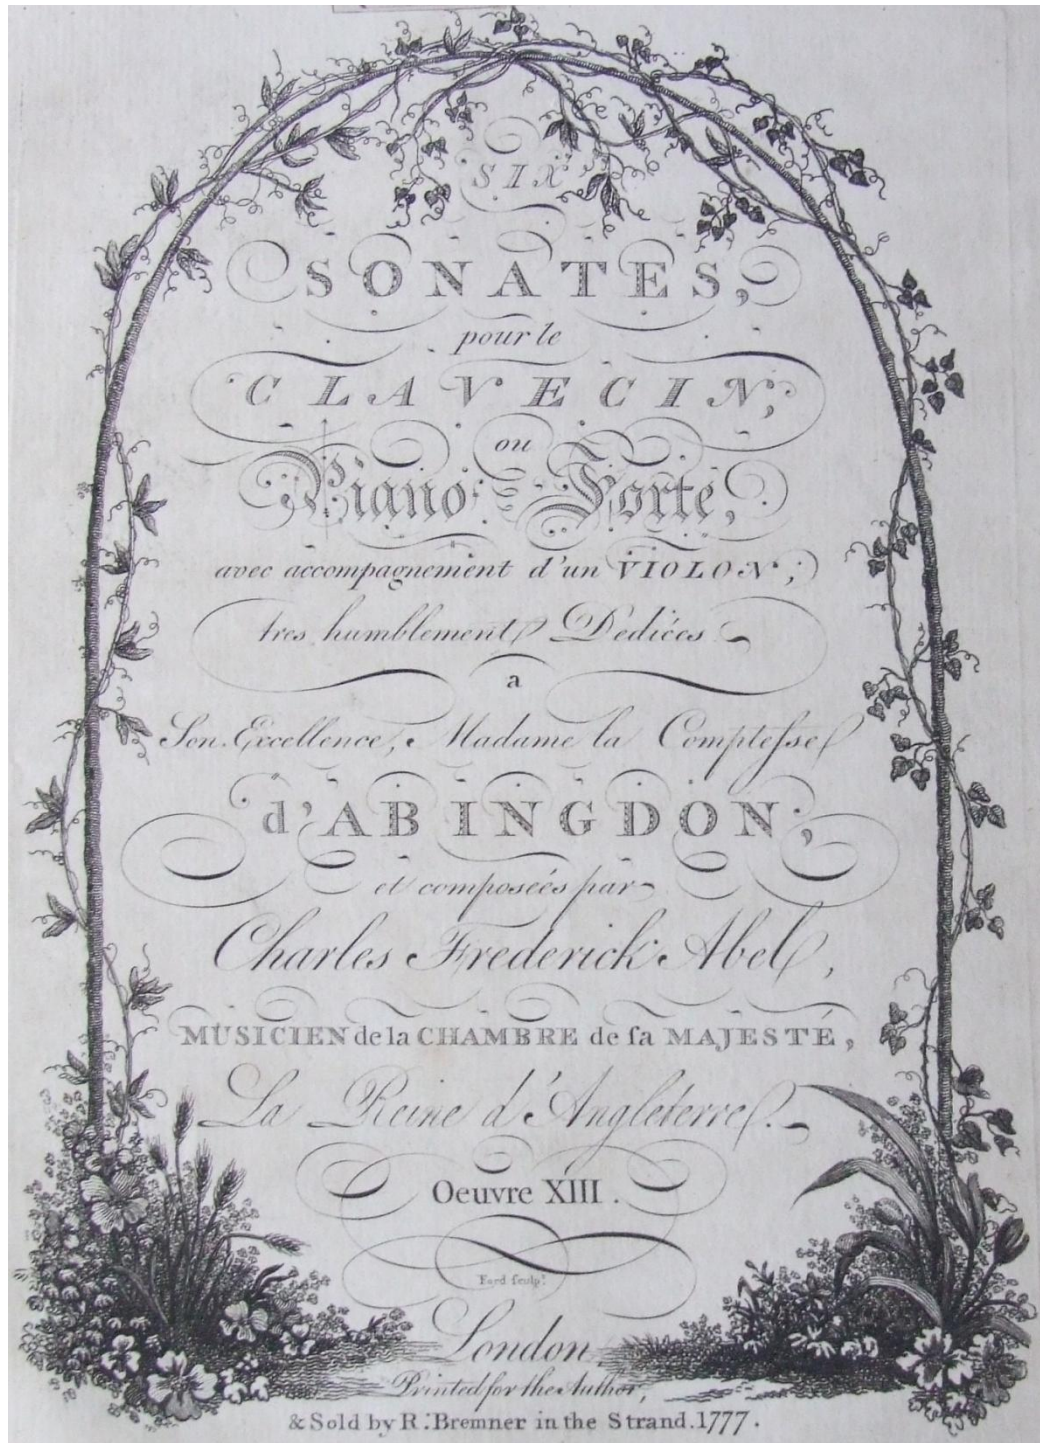 SIX
SONATES,
pour le
CLAVECIN,
ou
Piano Forte,
avec accompagnement d'un VIOLON;
tres humblement Dediées
a
Son Excellence, Madame la Comptesse
d'ABINGDON;
et composeés par
Charles Frederick Abel,
MUSICIEN de la CHAMBRE de sa MAJESTÉ,
La Reine d'Angleterre.
Oeuvre XIII.
Ford sculpt.
London
Printed for the Author,
& Sold by R. Bremner in the Strand. 1777.